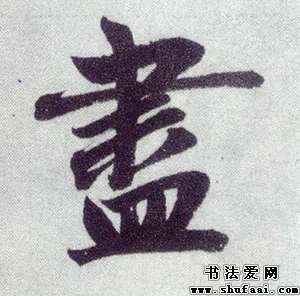 盡
书法爱网
www.shufaai.com